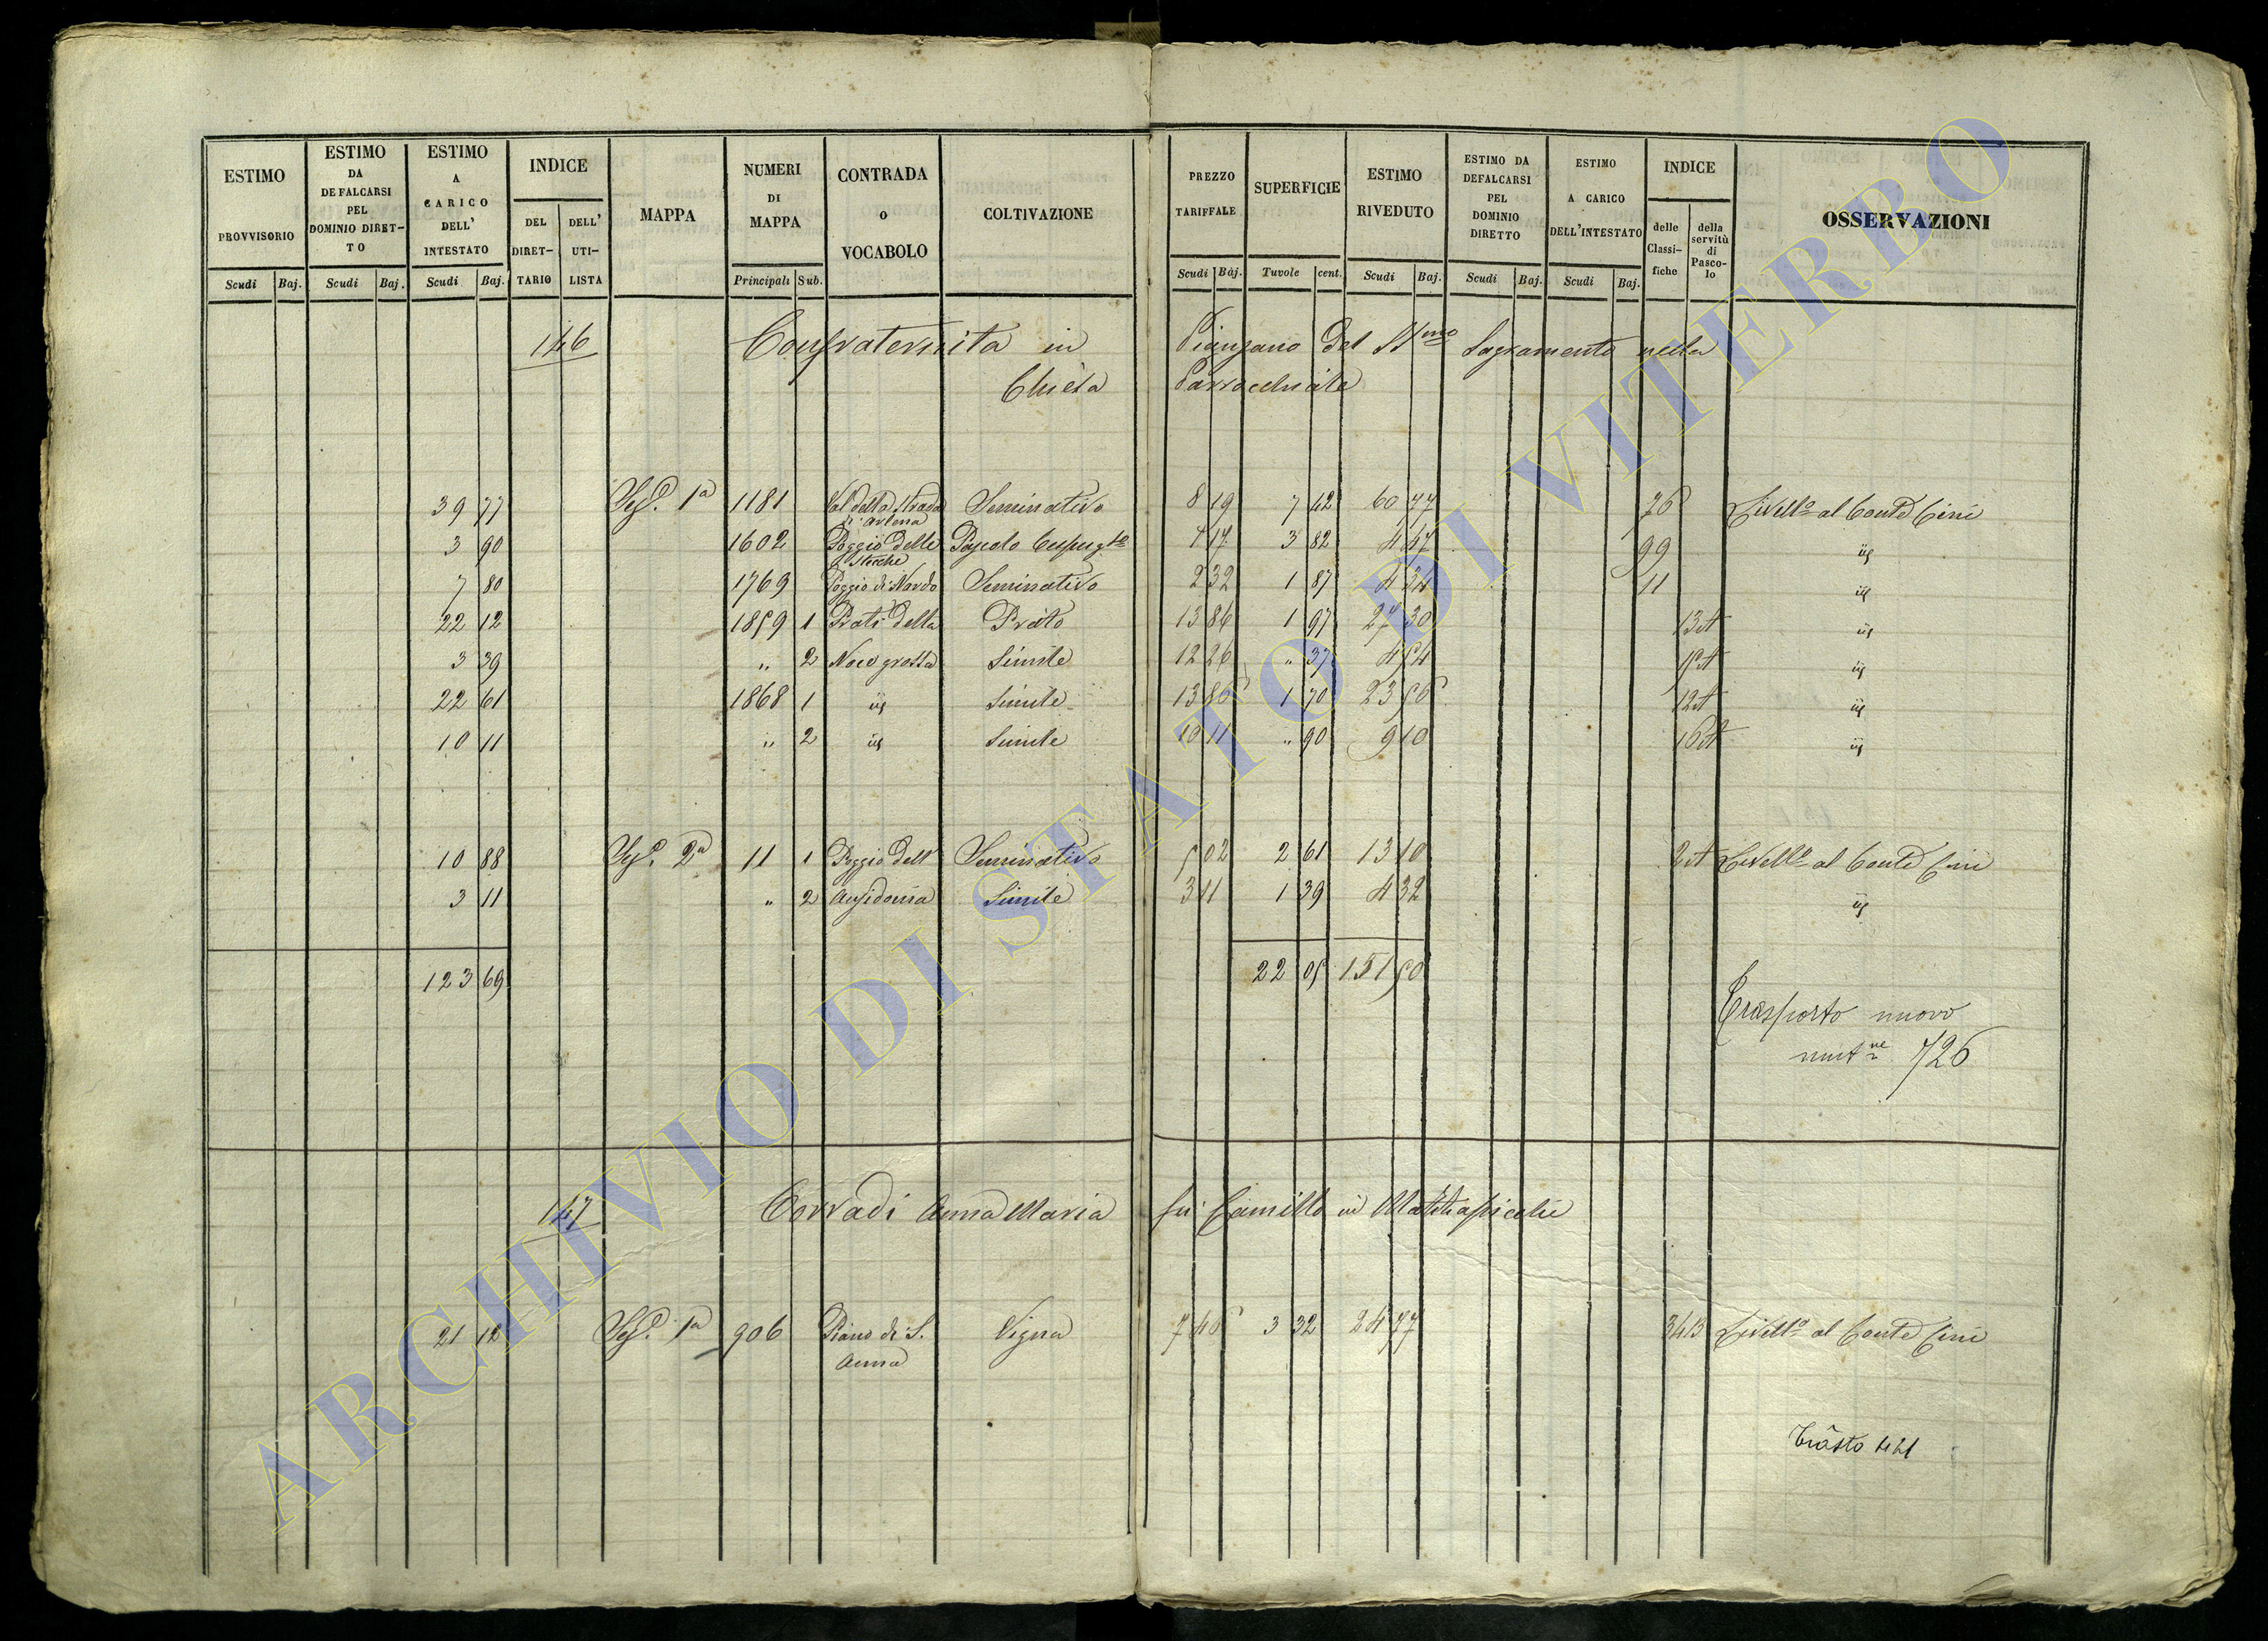 ESTIMO PROVVISORIO Scudi Baj.
ESTIMO DA DEFALCARSI PEL DOMINIO DIRET-TO Scudi Baj.
ESTIMO A CARICO DELL' INTESTATO Scudi Baj.
INDICE DEL DIRET-TARIO DELL' UTI-LISTA
MAPPA
NUMERI DI MAPPA Principali Sub.
CONTRADA o VOCABOLO
COLTIVAZIONE
PREZZO TARIFFALE Scudi Baj.
SUPERFICIE Tavole cent.
ESTIMO RIVEDUTO Scudi Baj.
ESTIMO DA DEFALCARSI PEL DOMINIO DIRETTO Scudi Baj.
ESTIMO A CARICO DELL'INTESTATO Scudi Baj.
INDICE delle Classi-fiche della servitù di Pasco-lo
OSSERVAZIONI
146 Confraternita in Pianzano del SSmo Sagramento nella
Chiesa Parrocchiale
39 77 Sez. 1a 1181 Val della Strada Seminativo 8 19 7 42 60 77 26 Livello al Conte Cini
di Arlena
3 90 1602 Poggio delle Pascolo Cespugto 1 17 3 82 4 47 99 id
Stecche
7 80 1769 Poggio di Nardo Seminativo 2 32 1 87 4 34 11 id
22 12 1859 1 Prati della Prato 13 86 1 97 27 30 13 A id
3 39 " 2 Noce grossa Simile 12 26 " 37 4 54 15 A id
22 61 1868 1 id Simile 13 86 1 70 23 56 12 A id
10 11 " 2 id Simile 10 11 " 90 9 10 16 A id
10 88 Sez. 2a 11 1 Poggio dell' Seminativo 5 02 2 61 13 10 2 A Livello al Conte Cini
3 11 " 2 Ansidonia Simile 3 11 1 39 4 32 id
123 69 22 05 151 50
Trasporto nuovo
726
147 Corradi Anna Maria fu Camillo in Mattiapicchi
21 12 Sez. 1a 906 Piano di S. Vigna 7 46 3 32 24 77 34 B Livello al Conte Cini
Anna
Trasto 441
ARCHIVIO DI STATO DI VITERBO